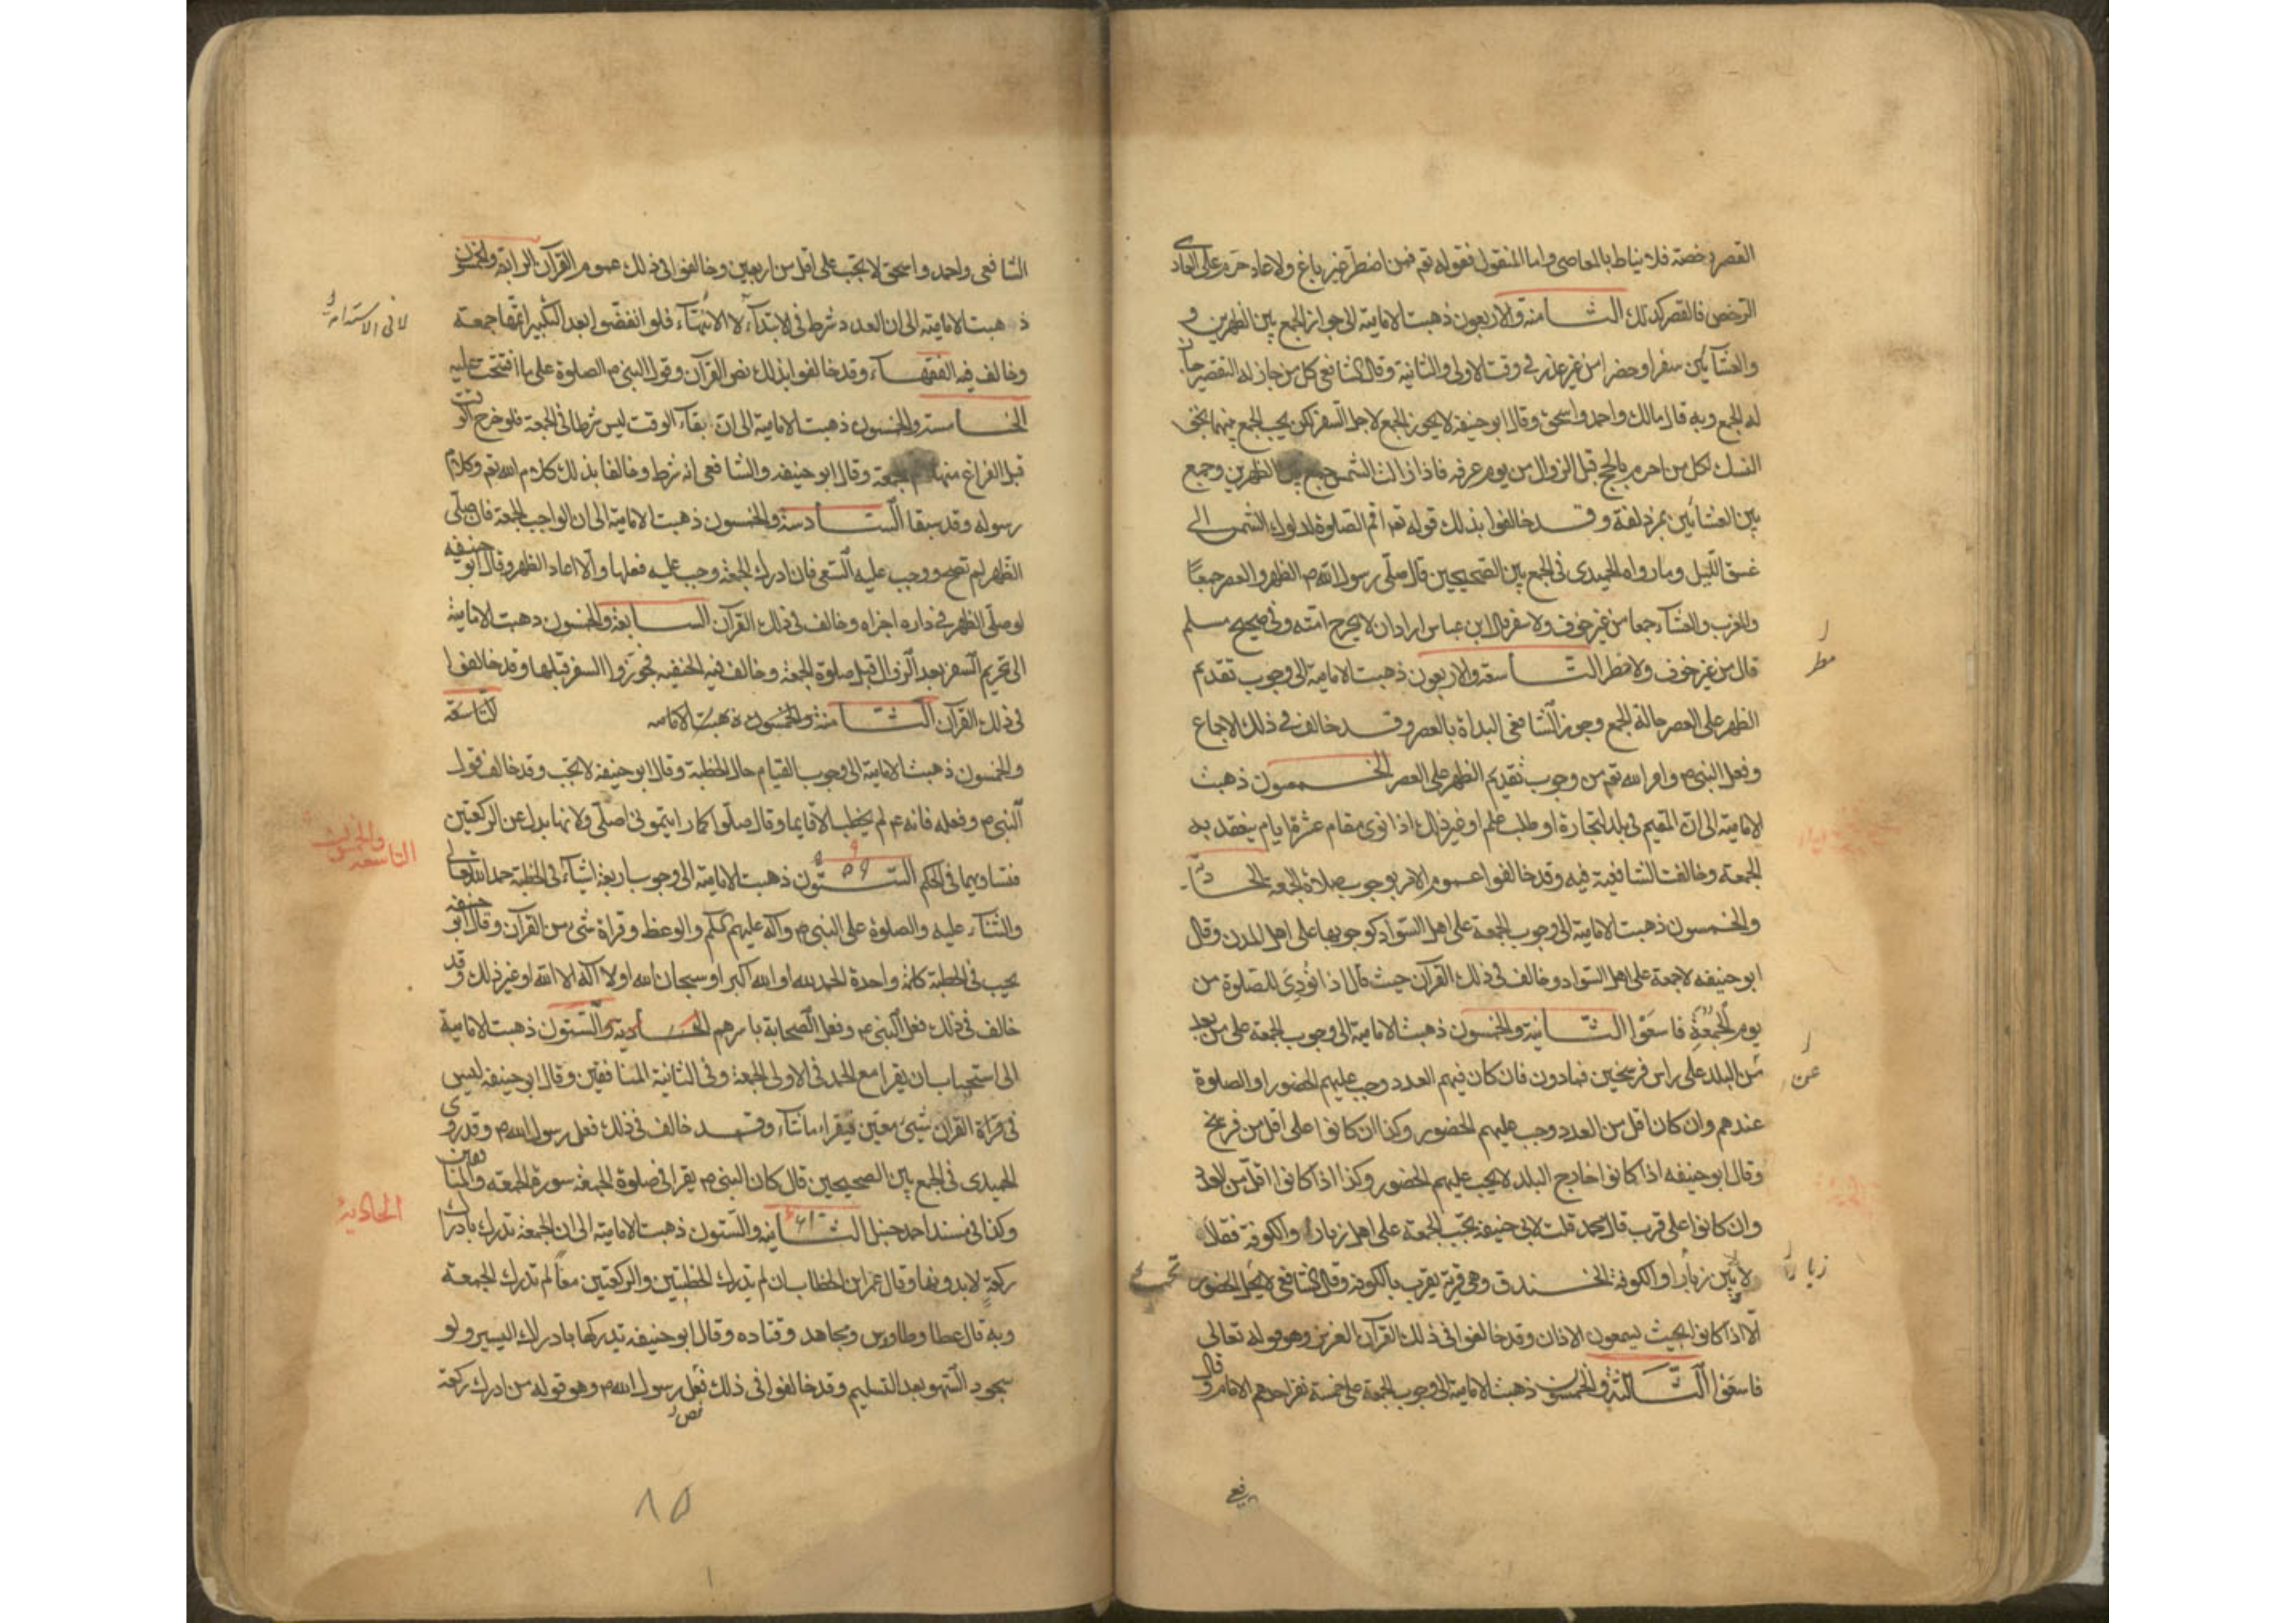 القصر رخصة فلا يناط بالمعاصى واما المنقول فقوله تعم فمن اضطر غير باغ ولا عاد حرم على العادى
الترخص فالقصر كذلك الثامنة والاربعون ذهبت الامامية الى جواز الجمع بين الظهرين و
والعشائين سفرا وحضرا من غير عذر فى وقت الاولى والثانية وقال الشافعى كل من جاز له التقصير جاز
له الجمع وبه قال مالك واحمد واسحق وقال ابو حنيفة لا يجوز الجمع لاجل السفر لكن يجب الجمع بينهما بحق
النسك لكل من احرم بالحج قبل الزوال من يوم عرفه فاذا زالت الشمس جمع بين الظهرين وجمع
بين العشائين بمزدلفة وقد خالفوا بذلك قوله تعم اقم الصلوة لدلوك الشمس الى
غسق الليل وما رواه الحميدى فى الجمع بين الصحيحين قال صلى رسول الله ص الظهر والعصر جميعًا
والمغرب والعشاء جمعا من غير خوف ولا سفر قال ابن عباس اراد ان لا يحرج امته وفى صحيح مسلم
مطر
قال من غير خوف ولا مطر التاسعة والاربعون ذهبت الامامية الى وجوب تقديم
الظهر على العصر حالة الجمع وجوز الشافعى البداة بالعصر وقد خالف فى ذلك الاجماع
وفعل النبى ص وامر الله تعم من وجوب تقديم الظهر على العصر الخمسون ذهبت
الامامية الى ان المقيم فى بلد لتجارة او طلب علم او غير ذلك اذا نوى مقام عشرة ايام ينعقد به
الجمعة وخالفت الشافعية فيه وقد خالفوا عموم الامر بوجوب صلاة الجمعة الحاد
والخمسون ذهبت الامامية الى وجوب الجمعة على اهل السواد كوجوبها على اهل المدن وقال
ابو حنيفه لا جمعة على اهل السواد وخالف فى ذلك القرآن حيث قال اذا نُودِىَ للصلوة من
يوم الجمعة فاسعَوْا الثانية والخمسون ذهبت الامامية الى وجوب الجمعة على من بعد
عن
من البلد على راس فرسخين فما دون فان كان فيهم العدد وجب عليهم الحضور او الصلوة
عندهم وان كان اقل من العدد وجب عليهم الحضور وكذا ان كانوا على اقل من فرسخ
وقال ابو حنيفه اذا كانوا خارج البلد لا يجب عليهم الحضور وكذا اذا كانوا اقل من العدد
وان كانوا على قرب قال محمد قلت لابى حنيفة تجب الجمعة على اهل زبارا والكوفة فقال
زبارا
لا بين زبارا والكوفة الخندق وهى قرية بقرب بالكوفة وقال الشافعى لا يجب الحضور
الا اذا كانوا بحيث يسمعون الاذان وقد خالفوا فى ذلك القرآن العزيز وهو قوله تعالى
فاسعَوْا الثالثة والخمسون ذهبت الامامية الى وجوب الجمعة على خمسة نفر احدهم الامام وقال
الشافعى واحمد واسحق لا تجب على اقل من اربعين وخالفوا فى ذلك عموم القرآن الرابعة والخمسون
ذهبت الامامية الى ان العدد شرط فى الابتداء لا الانتهاء فلو انفضوا بعد التكبير اتمها جمعة
لا فى الاستدامة
وخالف فيه الفقهاء وقد خالفوا بذلك نص القرآن وقول النبى ص الصلوة على ما افتتحت عليه
الخامسة والخمسون ذهبت الامامية الى ان بقاء الوقت ليس شرطا فى الجمعة فلو خرج الوقت
قبل الفراغ منها جمعة وقال ابو حنيفه والشافعى انه شرط وخالفا بذلك كلام الله تعم وكلام
رسوله وقد سبقا السادسة والخمسون ذهبت الامامية الى ان الواجب الجمعة فان صلى
الظهر لم تصح ووجب عليه السعى فان ادرك الجمعة وجب عليه فعلها والا اعاد الظهر وقال ابو حنيفه
لو صلى الظهر فى داره اجزاه وخالف فى ذلك القرآن السابعة والخمسون ذهبت الامامية
الى تحريم السفر بعد الزوال قبل صلوة الجمعة وخالف فيه الحنفيه فجوزوا السفر قبلها وقد خالفوا
فى ذلك القرآن الثامنة والخمسون ذهبت الامامية التاسعة
والخمسون ذهبت الامامية الى وجوب القيام حال الخطبة وقال ابو حنيفة لا يجب وقد خالف قول
النبى ص وفعله فانه ع لم يخطب الا قايما وقال صلوا كما رايتمونى اصلى ولانها بدل عن الركعتين
التاسعة والخمسون
فتساويهما فى الحكم الستون ٥٩ ذهبت الامامية الى وجوب اربعة اشياء فى الخطبة حمد الله تعالى
والثناء عليه والصلوة على النبى ص وآله عليهم السلم والوعظ وقراة شئ من القرآن وقال ابو حنيفه
يجب فى الخطبة كلمة واحدة الحمد لله او الله اكبر او سبحان الله او لا اله الا الله او غير ذلك وقد
خالف فى ذلك فعل النبى ص وفعل الصحابة باسرهم الحادية والستون ذهبت الامامية
الى استحباب ان يقرا مع الحمد فى الاولى الجمعة وفى الثانية المنافقين وقال ابو حنيفه ليس
فى قراة القران شيئ معين فيقراء ما شاء وقد خالف فى ذلك فعل رسول الله ص وقد روى
الحميدى فى الجمع بين الصحيحين قال كان النبى ص يقرا فى صلوة الجمعة سورة الجمعه والمنافقين
الحادية
وكذا فى مسند احمد حنبل الثانيه والستون ٦١ ذهبت الامامية الى ان الجمعة تدرك بادراك
ركعة لا بدونها وقال عمر ابن الخطاب ان لم يدرك الخطبتين والركعتين معًا لم تدرك الجمعة
وبه قال عطا وطاوس ومجاهد وقتاده وقال ابو حنيفة تدركها بادراك اليسير ولو
سجود السهو بعد التسليم وقد خالفوا فى ذلك فعل رسول الله ص وهو قوله من ادرك ركعة
نص
٨٥